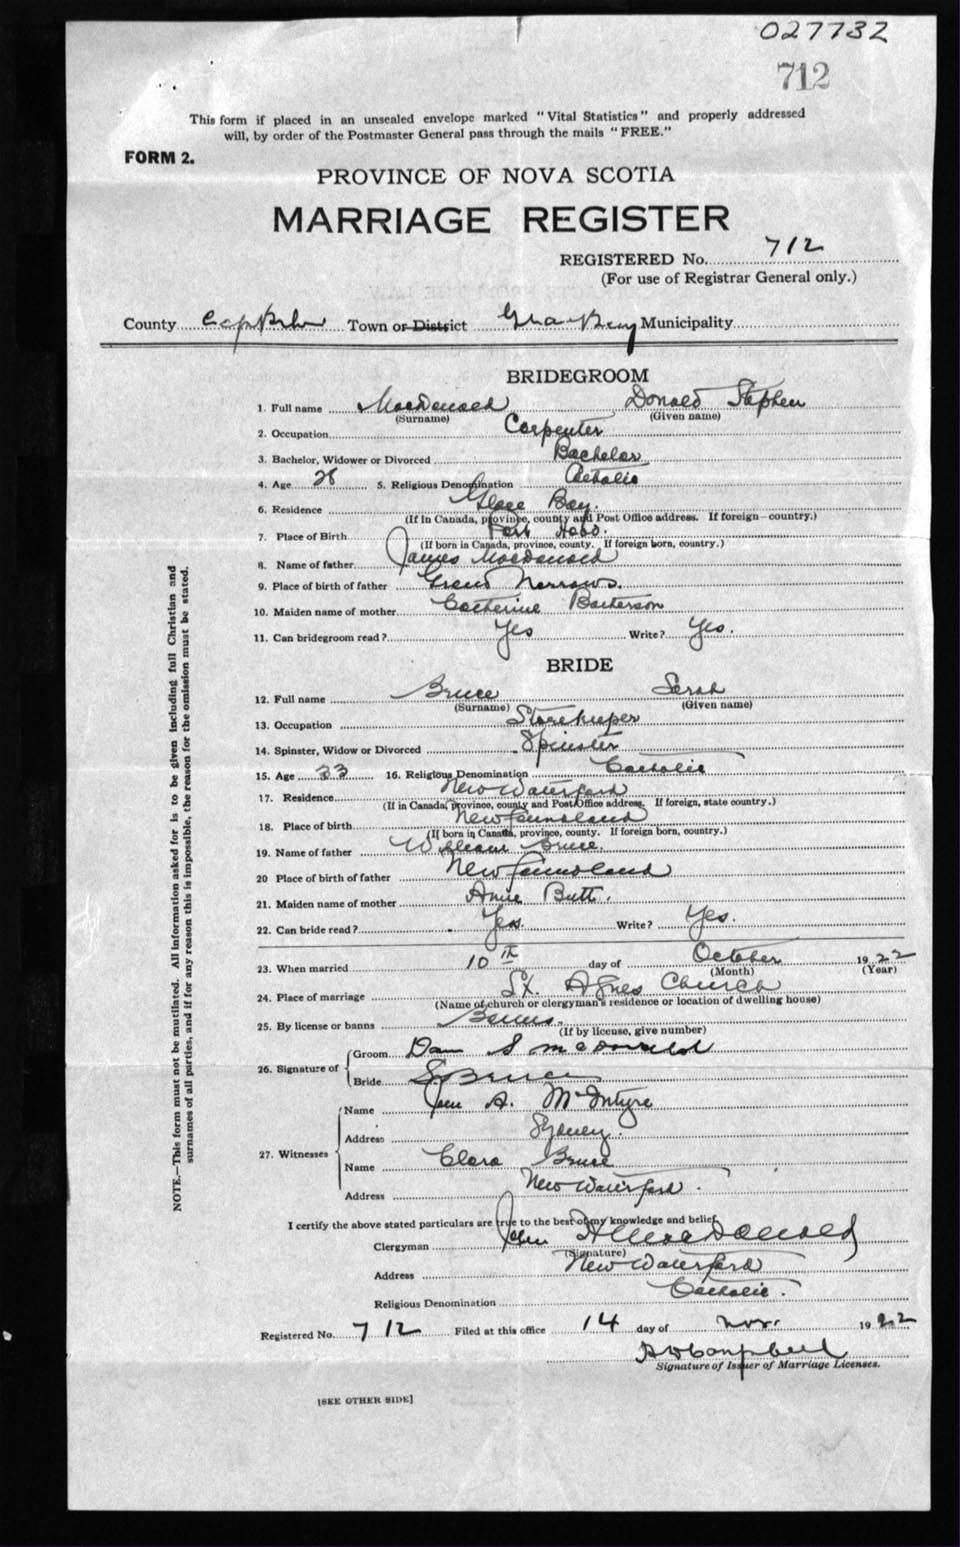 027732
712
This form if placed in an unsealed envelope marked "Vital Statistics" and properly addressed
will, by order of the Postmaster General pass through the mails "FREE."
FORM 2.
PROVINCE OF NOVA SCOTIA
MARRIAGE REGISTER
REGISTERED No. 712
(For use of Registrar General only.)
County Cape Breton Town or District Glace Bay Municipality
BRIDEGROOM
1. Full name MacDonald Donald Stephen
(Surname) (Given name)
2. Occupation Carpenter
3. Bachelor, Widower or Divorced Bachelor
4. Age 28 5. Religious Denomination Catholic
6. Residence Glace Bay.
(If in Canada, province, county and Post Office address. If foreign—country.)
7. Place of Birth Port Hood.
(If born in Canada, province, county. If foreign born, country.)
8. Name of father James MacDonald
9. Place of birth of father Grand Narrows.
10. Maiden name of mother Catherine
11. Can bridegroom read? Yes Write? Yes.
BRIDE
12. Full name Bruce Sarah
(Surname) (Given name)
13. Occupation Storekeeper
14. Spinster, Widow or Divorced Spinster
15. Age 33 16. Religious Denomination Catholic
17. Residence New Waterford
(If in Canada, province, county and Post Office address. If foreign, state country.)
18. Place of birth Newfoundland
(If born in Canada, province, county. If foreign born, country.)
19. Name of father William Bruce.
20 Place of birth of father Newfoundland
21. Maiden name of mother Annie Butt.
22. Can bride read? Yes. Write? Yes.
23. When married 10th day of October 1922
(Month) (Year)
24. Place of marriage St. Agnes Church
(Name of church or clergyman's residence or location of dwelling house)
25. By license or banns Banns.
(If by license, give number)
26. Signature of Groom Dan S McDonald
Bride S Bruce
27. Witnesses Name A. McIntyre
Address Sydney.
Name Clara Bruce
Address New Waterford.
I certify the above stated particulars are true to the best of my knowledge and belief.
Clergyman John H MacDonald
(Signature)
Address New Waterford
Religious Denomination Catholic.
Registered No. 712 Filed at this office 14 day of Nov. 1922
Campbell
Signature of Issuer of Marriage Licenses.
[SEE OTHER SIDE]
NOTE.—This form must not be mutilated. All information asked for is to be given including full Christian and
surnames of all parties, and if for any reason this is impossible, the reason for the omission must be stated.